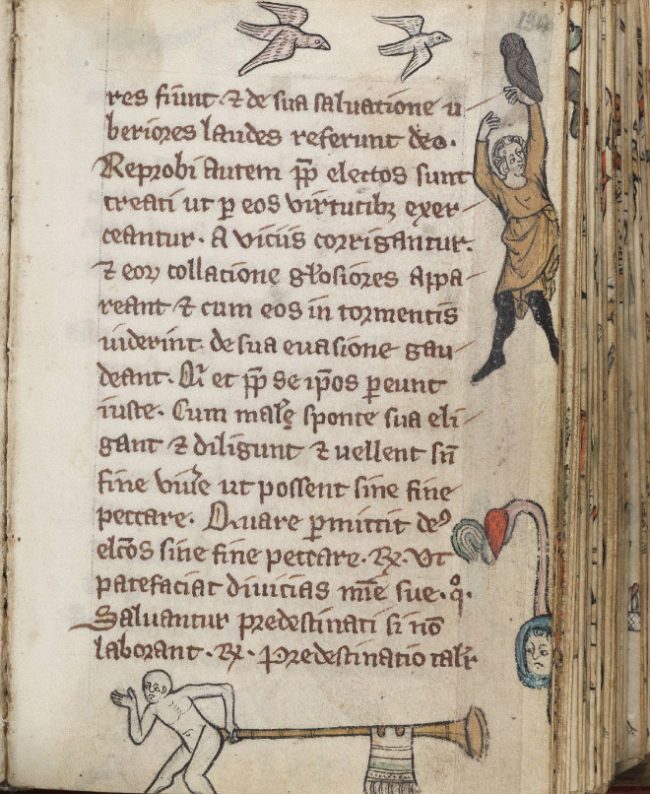 134
res fiūnt ⁊ de sua saluatione u
beriores laudes referunt deo.
Reprobi autem ꝓp̄ electos sunt
creati ut ꝑ eos virtutibꝫ exer
ceantur. A viciis corrigantur.
⁊ eoꝝ collacione gl̄osiores appa
reant ⁊ cum eos in tormentis
uiderint. de sua euasione gau
deant. et ꝓp̄ se ip̄os ꝑeunt
iuste. Cum sponte sua eli
gant ⁊ diligunt ⁊ uellent sn̄
fine ut possent sine fine
peccare. Quare ꝑmittit deꝰ
elc̄os sine fine peccare. ℞. Ut
patefaciat diuicias mīe sue.
Saluantur predestinati si nō
laborant. ℞. Predestinatio